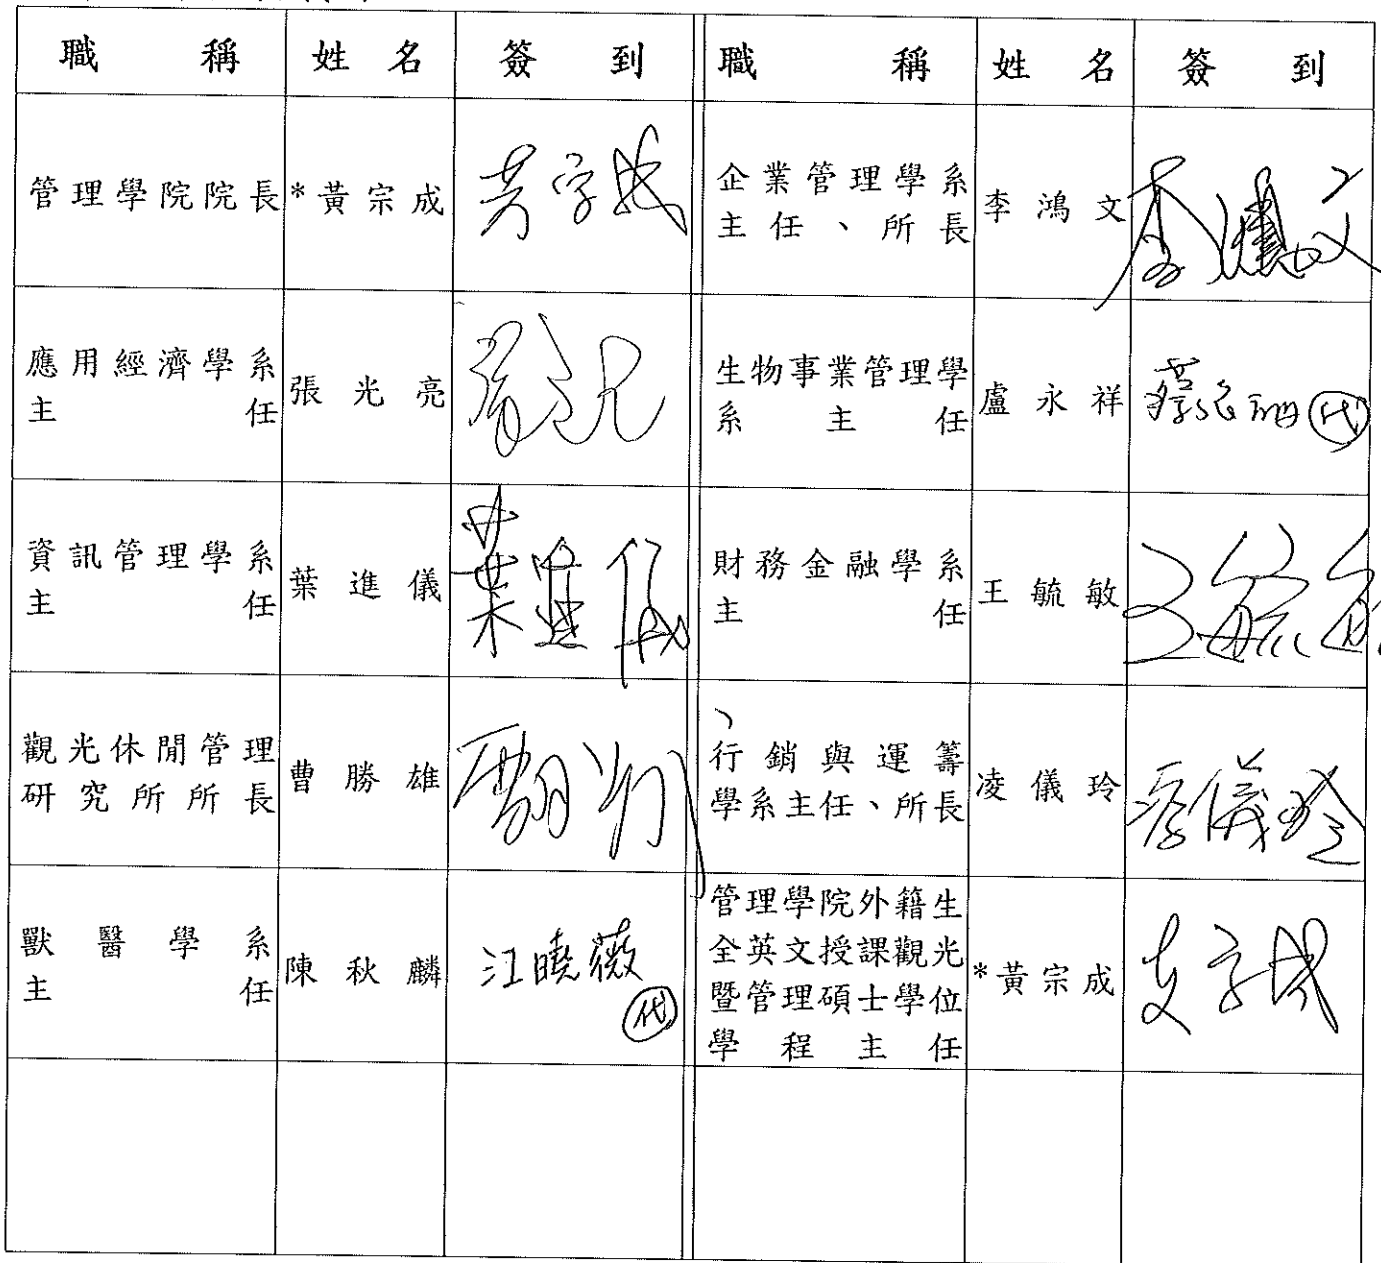 職稱 姓名 簽到 職稱 姓名 簽到
管理學院院長 *黃宗成 黃宗成 企業管理學系
主任、所長 李鴻文 李鴻文
應用經濟學系
主任 張光亮 生物事業管理學
系主任 盧永祥 (代)
資訊管理學系
主任 葉進儀 葉進儀 財務金融學系
主任 王毓敏 王毓敏
觀光休閒管理
研究所所長 曹勝雄 行銷與運籌
學系主任、所長 凌儀玲 凌儀玲
獸醫學系
主任 陳秋麟 江曉薇
(代)
管理學院外籍生
全英文授課觀光
暨管理碩士學位
學程主任 *黃宗成 黃宗成